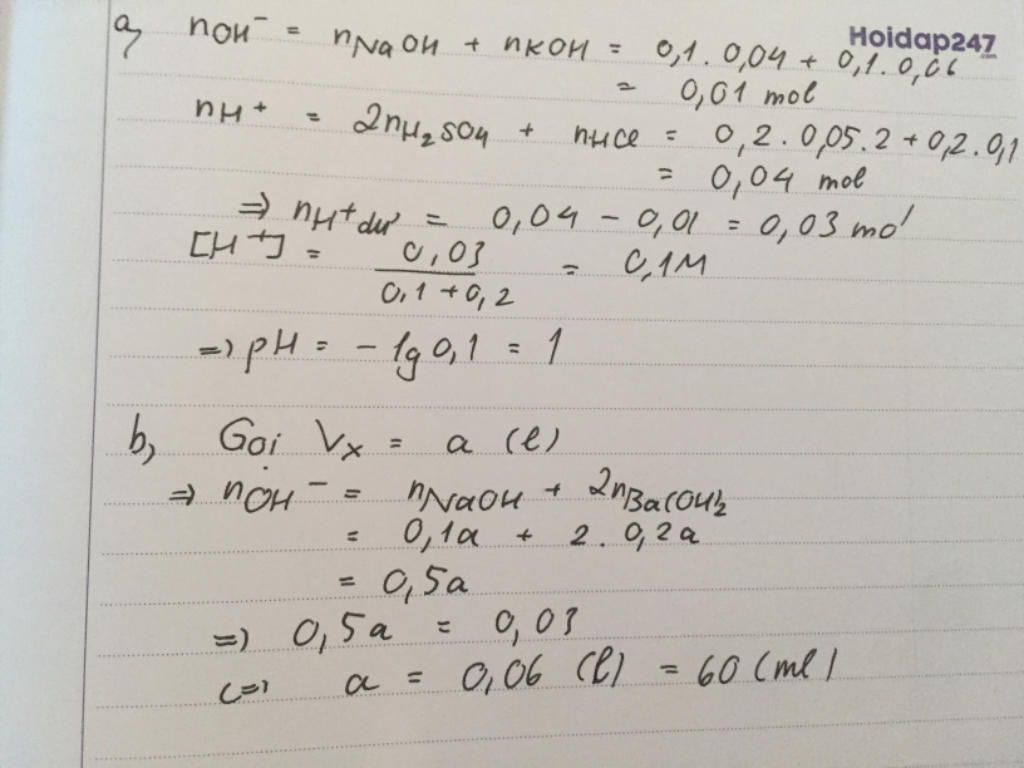 a, nOH⁻ = nNaOH + nKOH = 0,1.0,04 + 0,1.0,06
= 0,01 mol
nH⁺ = 2nH₂SO₄ + nHCl = 0,2.0,05.2 + 0,2.0,1
= 0,04 mol
=> nH⁺dư = 0,04 - 0,01 = 0,03 mol
[H⁺] = 0,03 / 0,1 + 0,2 = 0,1M
=> pH = - lg 0,1 = 1
b, Gọi Vx = a (l)
=> nOH⁻ = nNaOH + 2nBa(OH)₂
= 0,1a + 2.0,2a
= 0,5a
=> 0,5a = 0,03
<=> a = 0,06 (l) = 60 (ml)
Hoidap247
.com